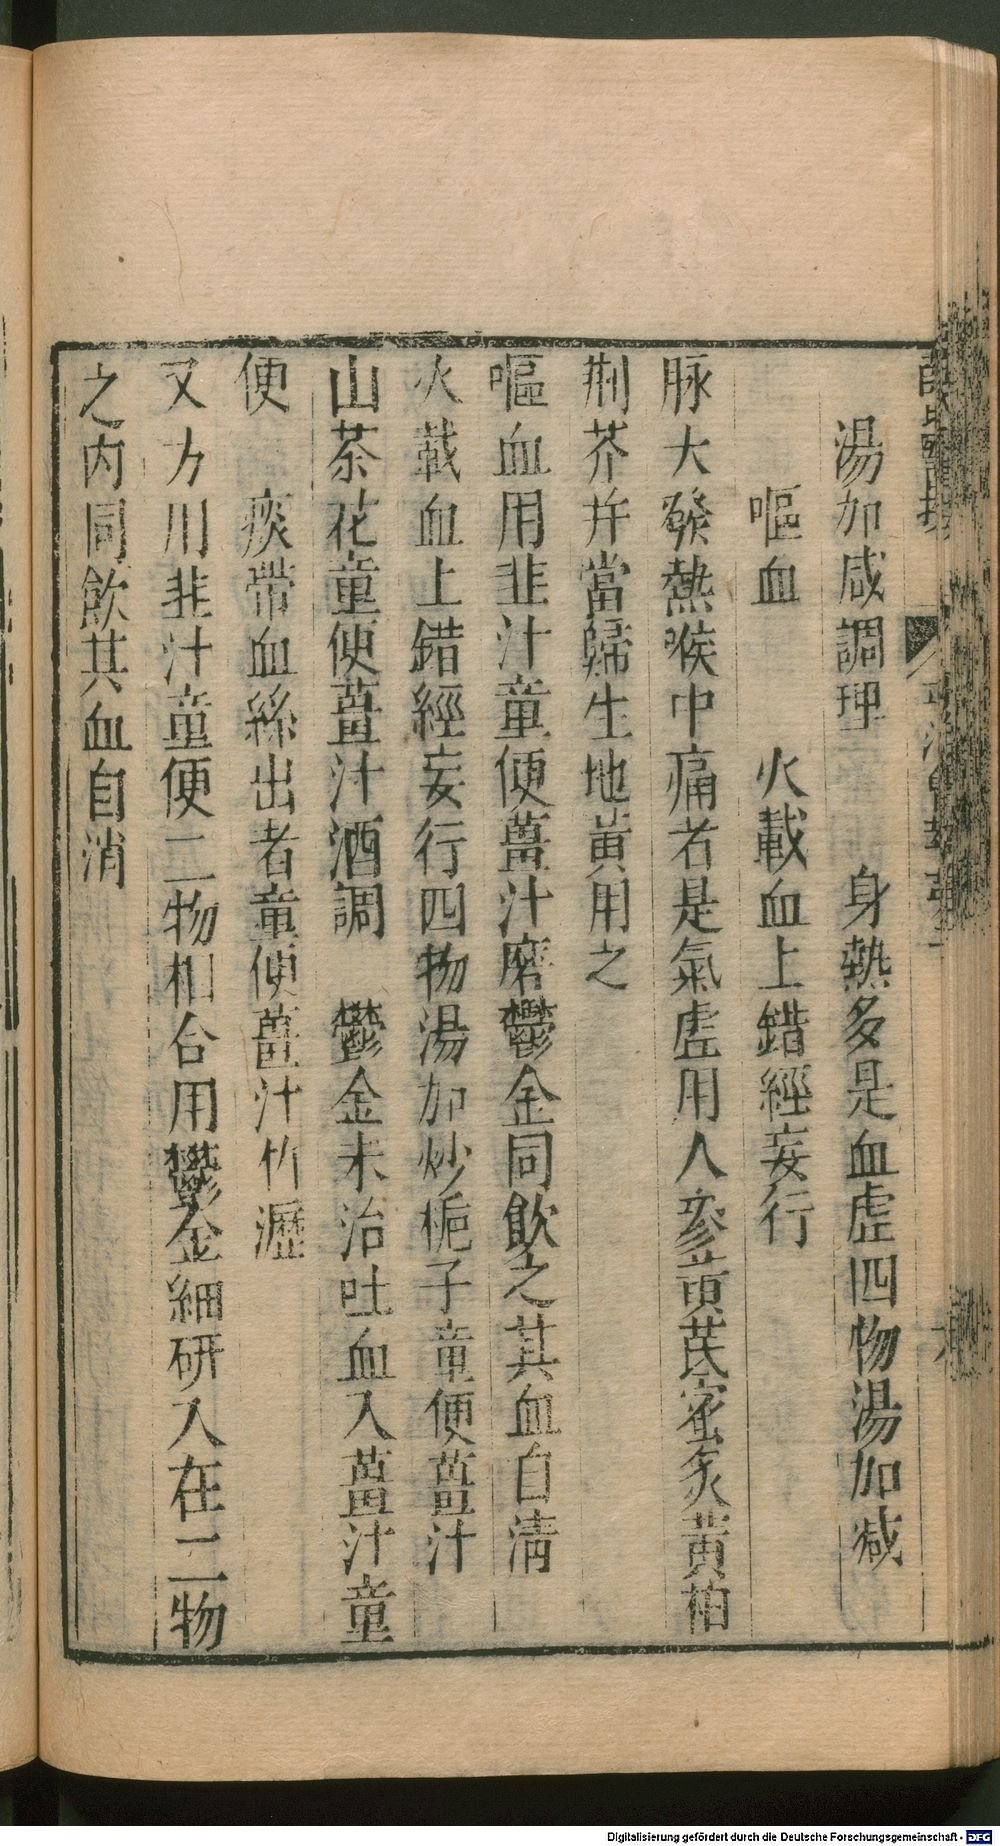 湯加咸調理　身熱多是血虛四物湯加减
嘔血　火載血上錯經妄行
脉大發熱喉中痛者是氣虛用人參黄芪蜜炙黄柏
荆芥并當歸生地黄用之
嘔血用韭汁童便薑汁磨鬱金同飲之其血自清
火載血上錯經妄行四物湯加炒梔子童便薑汁
山茶花童便薑汁酒調　鬱金末治吐血入薑汁童
便　痰帶血絲出者童便薑汁竹瀝
又方川韭汁童便二物相合用鬱金細研入在二物
之内同飲其血自消
Digitalisierung gefördert durch die Deutsche Forschungsgemeinschaft - DFG